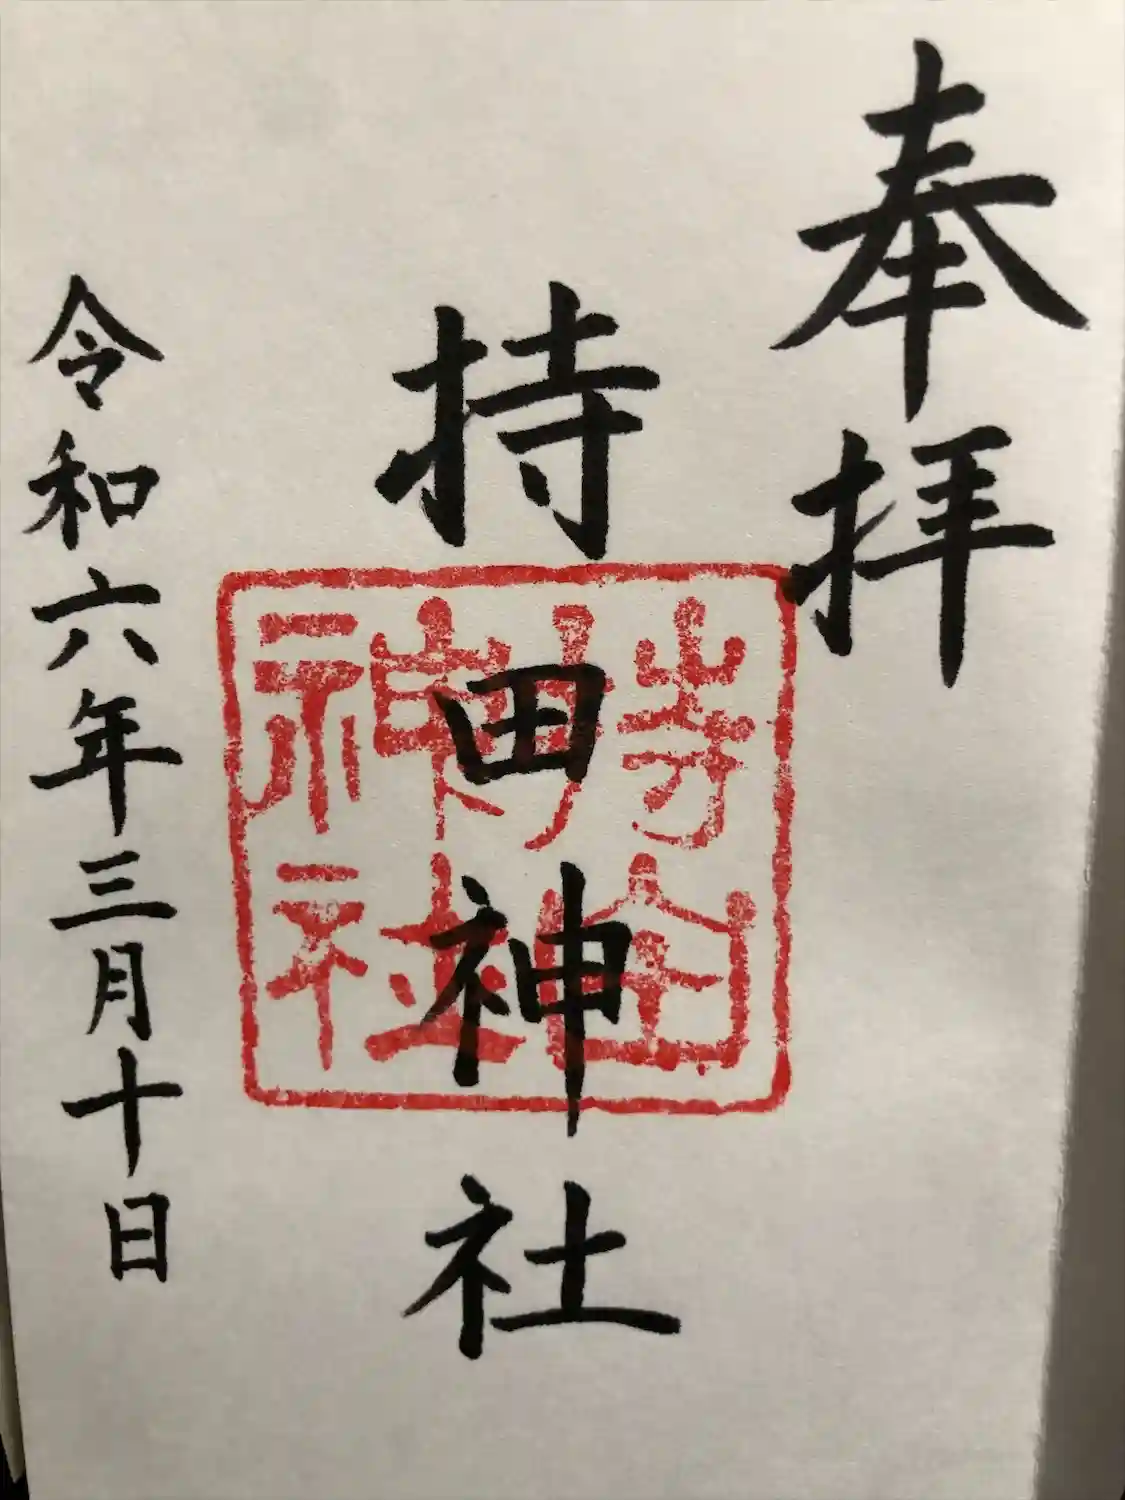 奉拝
持田神社
令和六年三月十日
神社